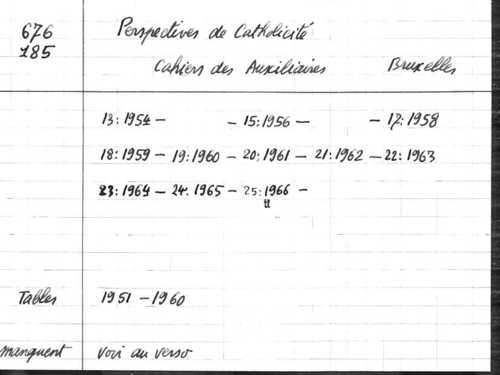 676 Perspectives de Catholicité
185
Cahiers des Auxiliaires Bruxelles
13: 1954 - - 15: 1956 - - 17: 1958
18: 1959 - 19: 1960 - 20: 1961 - 21: 1962 - 22: 1963
23: 1964 - 24. 1965 - 25: 1966 -
Tables 1951 - 1960
manquent voir au verso